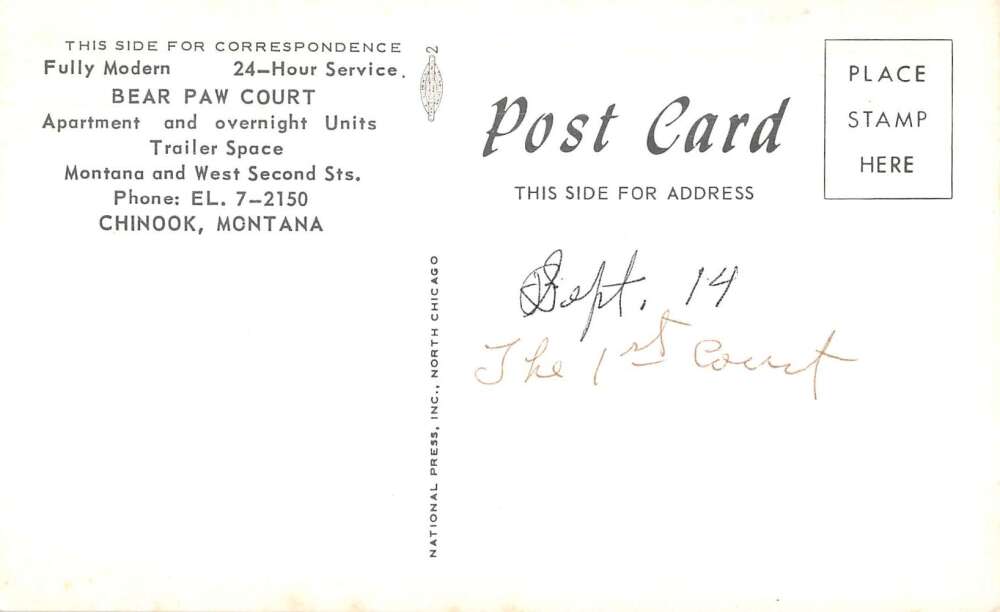 THIS SIDE FOR CORRESPONDENCE
Fully Modern 24-Hour Service.
BEAR PAW COURT
Apartment and overnight Units
Trailer Space
Montana and West Second Sts.
Phone: EL. 7-2150
CHINOOK, MONTANA
2
NATIONAL PRESS, INC., NORTH CHICAGO
Post Card
THIS SIDE FOR ADDRESS
PLACE
STAMP
HERE
Sept. 14
The 1st Court